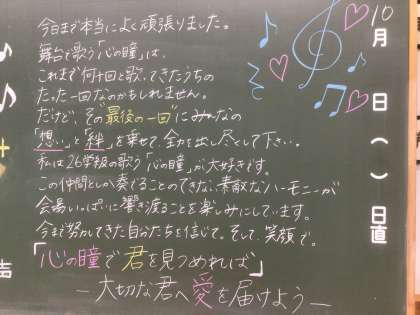 今日まで本当によく頑張りました。
舞台で歌う「心の瞳」は、
これまで何十回と歌ってきたうちの
たった一回なのかもしれません。
だけど、その"最後の一回"にみんなの
「想い」と「絆」を乗せて、全力を出し尽くして下さい。
私は、26学級の歌う「心の瞳」が大好きです。
この仲間としか奏でることのできない素敵なハーモニーが
会場いっぱいに響き渡ることを楽しみにしています。
今まで努力してきた自分たちを信じて。そして、笑顔で。
「心の瞳で君を見つめれば」
―大切な君へ愛を届けよう―
10月 日( )日直
声